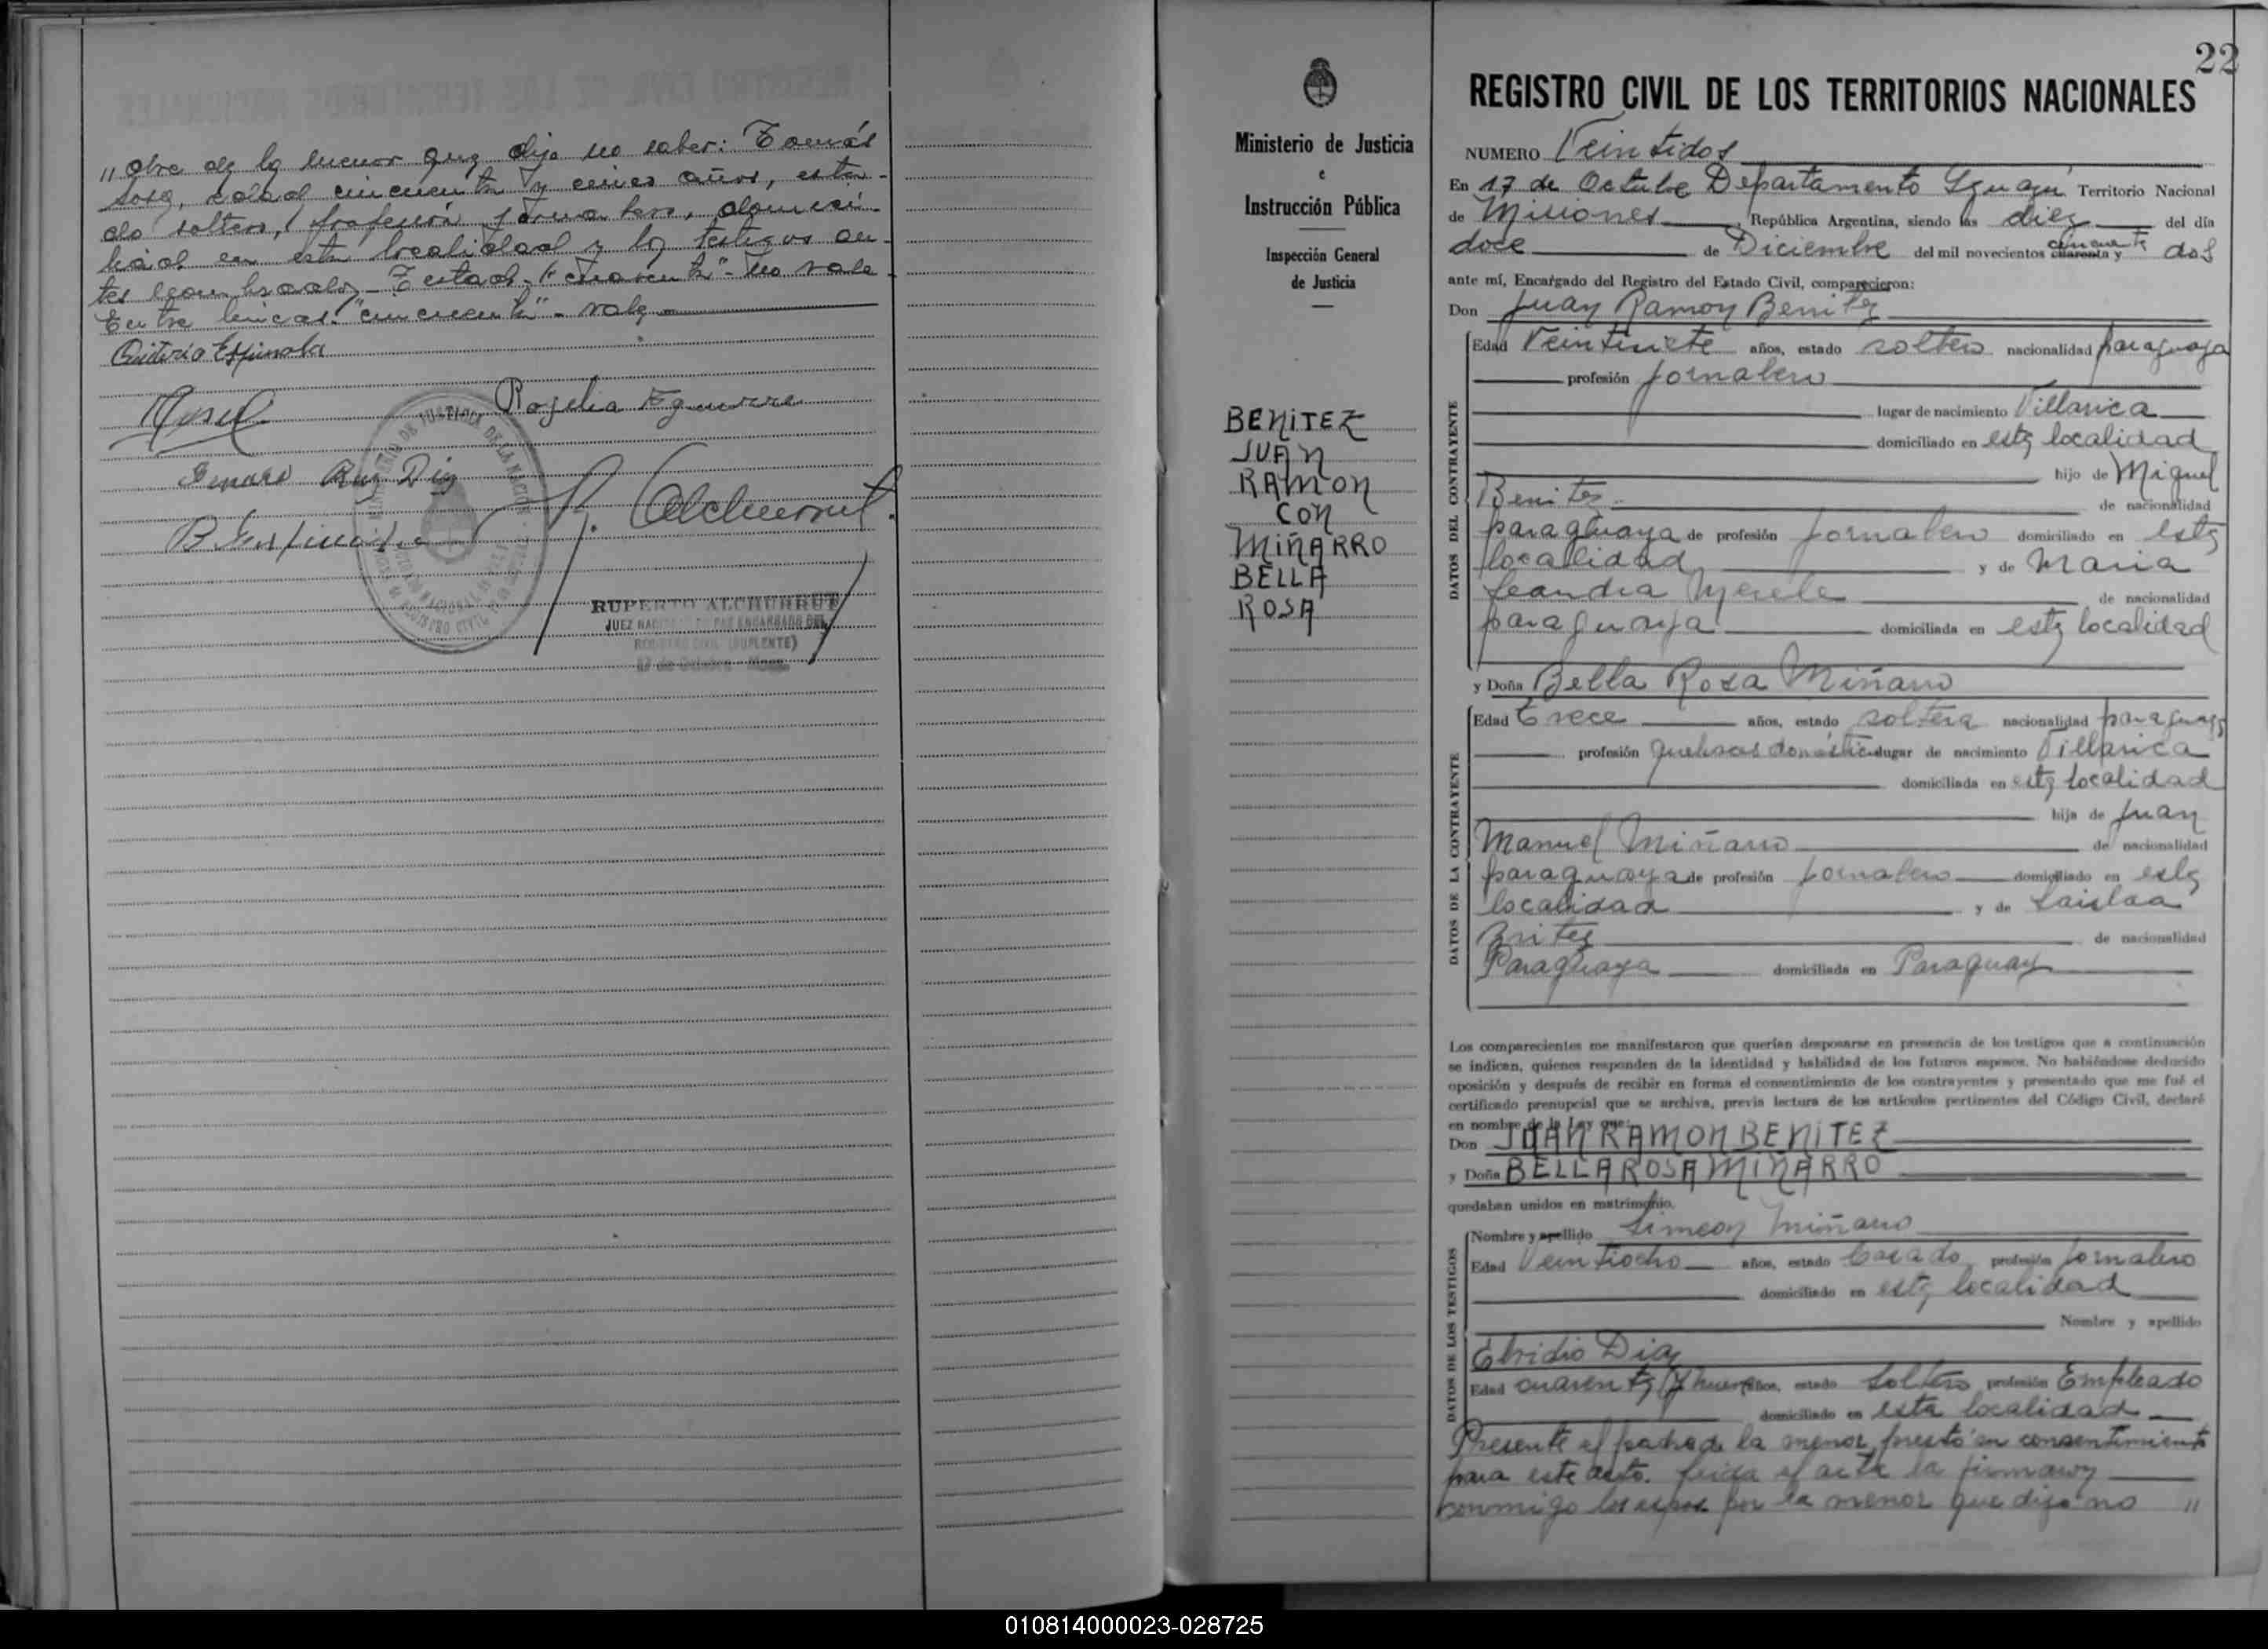 " otra de la menor que dijo no saber: Tomás
Sosa, edad cincuenta y cinco años, esta-
do soltero, profesión jornalero, domicili-
ado en esta localidad y los testigos an-
tes nombrados - Testado "cuarenta" - no vale -
Entre lineas: "cincuenta" - vale -
Quiterio Espinola
Rogelia
JUEZ
22
REGISTRO CIVIL DE LOS TERRITORIOS NACIONALES
Ministerio de Justicia
e
Instrucción Pública
Inspección General
de Justicia
BENITEZ
JUAN
RAMON
CON
MIÑARRO
BELLA
ROSA
NUMERO Veintidos
En 17 de Octubre Departamento Iguazú Territorio Nacional
de Misiones República Argentina, siendo las diez del día
doce de Diciembre del mil novecientos cuarenta y cincuenta dos
ante mí, Encargado del Registro del Estado Civil, comparecieron:
Don Juan Ramon Benitez
DATOS DEL CONTRAYENTE
Edad Veintisiete años, estado soltero nacionalidad paraguaya
profesión jornalero
lugar de nacimiento Villarica
domiciliado en esta localidad
hijo de Miguel
Benitez de nacionalidad
paraguaya de profesión jornalero domiciliado en esta
localidad y de Maria
Leandra de nacionalidad
paraguaya domiciliada en esta localidad
y Doña Bella Rosa Miñarro
DATOS DE LA CONTRAYENTE
Edad Trece años, estado soltera nacionalidad paraguaya
profesión quehaceres domésticos lugar de nacimiento Villarica
domiciliada en esta localidad
hija de Juan
Manuel Miñarro de nacionalidad
paraguaya de profesión jornalero domiciliado en esta
localidad y de
Britez de nacionalidad
Paraguaya domiciliada en Paraguay
Los comparecientes me manifestaron que querían desposarse en presencia de los testigos que a continuación
se indican, quienes responden de la identidad y habilidad de los futuros esposos. No habiéndose deducido
oposición y después de recibir en forma el consentimiento de los contrayentes y presentado que me fué el
certificado prenupcial que se archiva, previa lectura de los artículos pertinentes del Código Civil, declaré
en nombre de la Ley que:
Don JUAN RAMON BENITEZ
y Doña BELLA ROSA MIÑARRO
quedaban unidos en matrimonio.
DATOS DE LOS TESTIGOS
Nombre y apellido Simeon Miñarro
Edad Veintiocho años, estado Casado profesión jornalero
domiciliado en esta localidad
Nombre y apellido
Elvidio Diaz
Edad cuarenta y nueve años, estado soltero profesión Empleado
domiciliado en esta localidad
Presente el padre de la menor, prestó su consentimiento
para este acto. Leida el acta la firmaron
conmigo los esposos por la menor que dijo no "
010814000023-028725